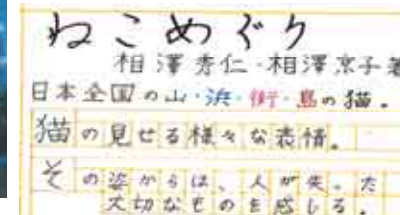 ねこめぐり
相澤秀仁・相澤京子著
日本全国の山・浜・街・島の猫。
猫の見せる様々な表情。
その姿からは、人が失った
大切なものを感じる。